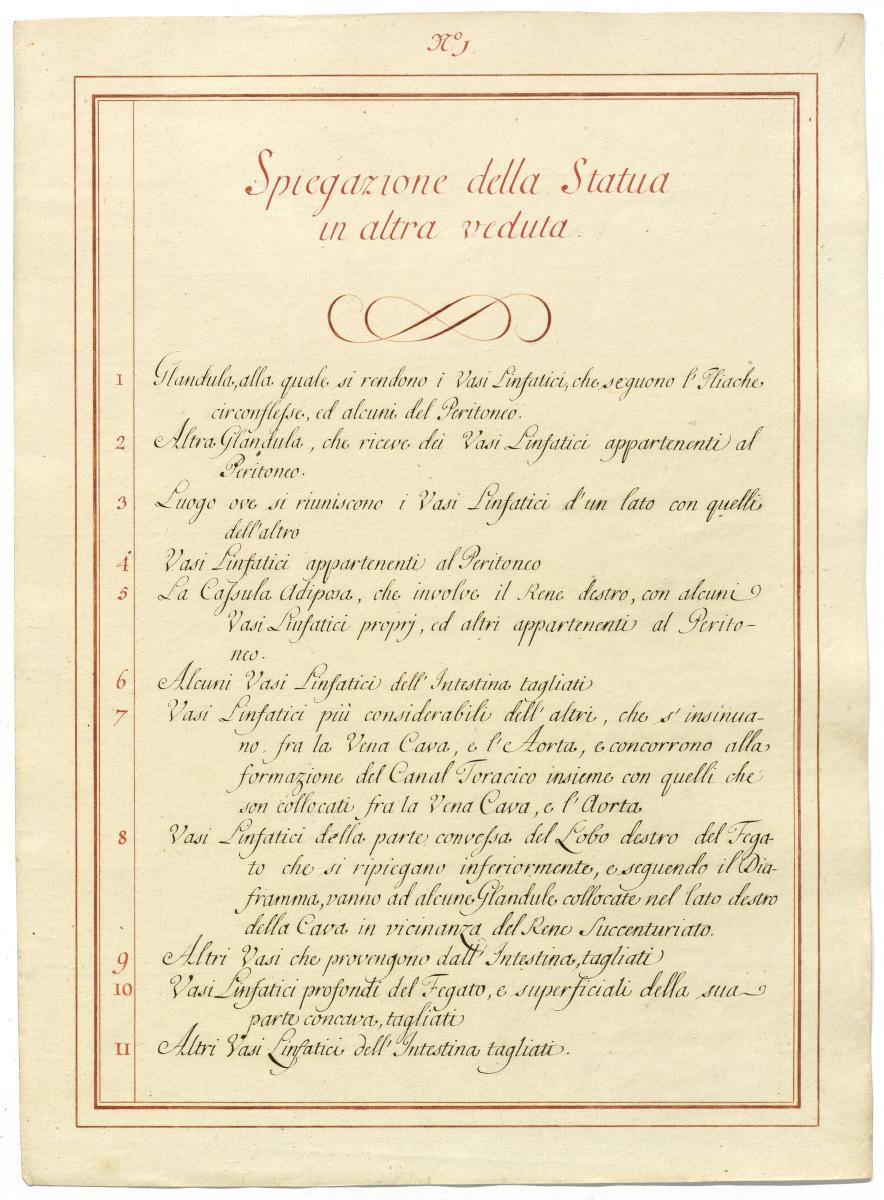 Nº 1
1
Spiegazione della Statua
in altra veduta.
1 Glandula, alla quale si rendono i Vasi Linfatici, che seguono l'Iliache
circonflesse, ed alcuni del Peritoneo.
2 Altra Glandula, che riceve dei Vasi Linfatici appartenenti al
Peritoneo.
3 Luogo ove si riuniscono i Vasi Linfatici d'un lato con quelli
dell'altro
4 Vasi Linfatici appartenenti al Peritoneo
5 La Cassula Adiposa, che involve il Rene destro, con alcuni
Vasi Linfatici proprj, ed altri appartenenti al Perito-
neo.
6 Alcuni Vasi Linfatici dell'Intestina tagliati
7 Vasi Linfatici più considerabili dell'altri, che s'insinua-
no fra la Vena Cava, e l'Aorta, e concorrono alla
formazione del Canal Toracico insieme con quelli che
son collocati fra la Vena Cava, e l'Aorta
8 Vasi Linfatici della parte convessa del Lobo destro del Fega-
to che si ripiegano inferiormente, e seguendo il Dia-
framma, vanno ad alcune Glandule collocate nel lato destro
della Cava in vicinanza del Rene Succenturiato.
9 Altri Vasi che provengono dall'Intestina, tagliati
10 Vasi Linfatici profondi del Fegato, e superficiali della sua
parte concava, tagliati
11 Altri Vasi Linfatici dell'Intestina tagliati.